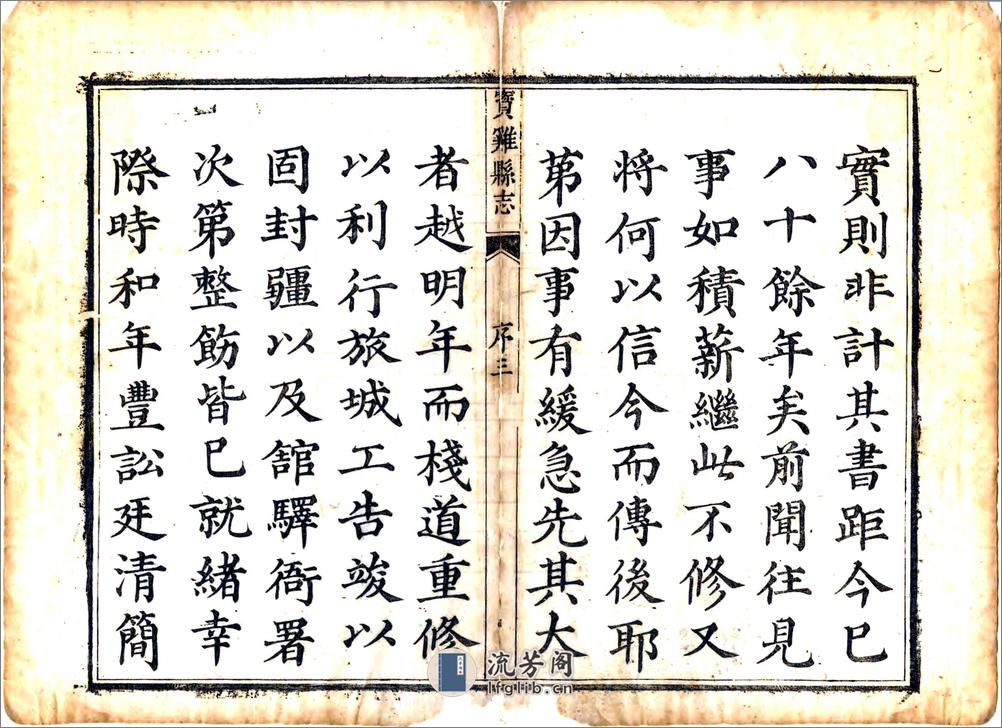 實則非計其書距今已
八十餘年矣前聞往見
事如積薪繼此不修又
將何以信今而傳後耶
苐因事有緩急先其大
寳雞縣志
序三
者越明年而棧道重修
以利行旅城工告竣以
固封疆以及舘驛衙署
次第整飭皆已就緒幸
際時和年豐訟廷清簡
流芳阁
lfglib.cn